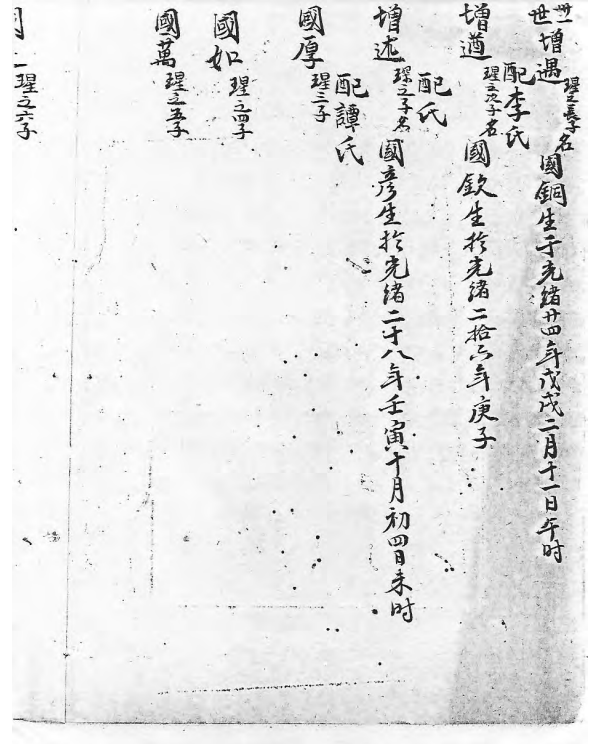 廿一世
增遇 瑆之長子名國銅生于光緒廿四年戊戌二月十一日午时
配李氏
增遒 瑆之次子名國欽生扵光緒二拾六年庚子
配氏
增述 之子名國彦生扵光緒二十八年壬寅十月初四日未时
配譚氏
國厚 瑆三子
國如 瑆之四子
國萬 瑆之五子
瑆之六子